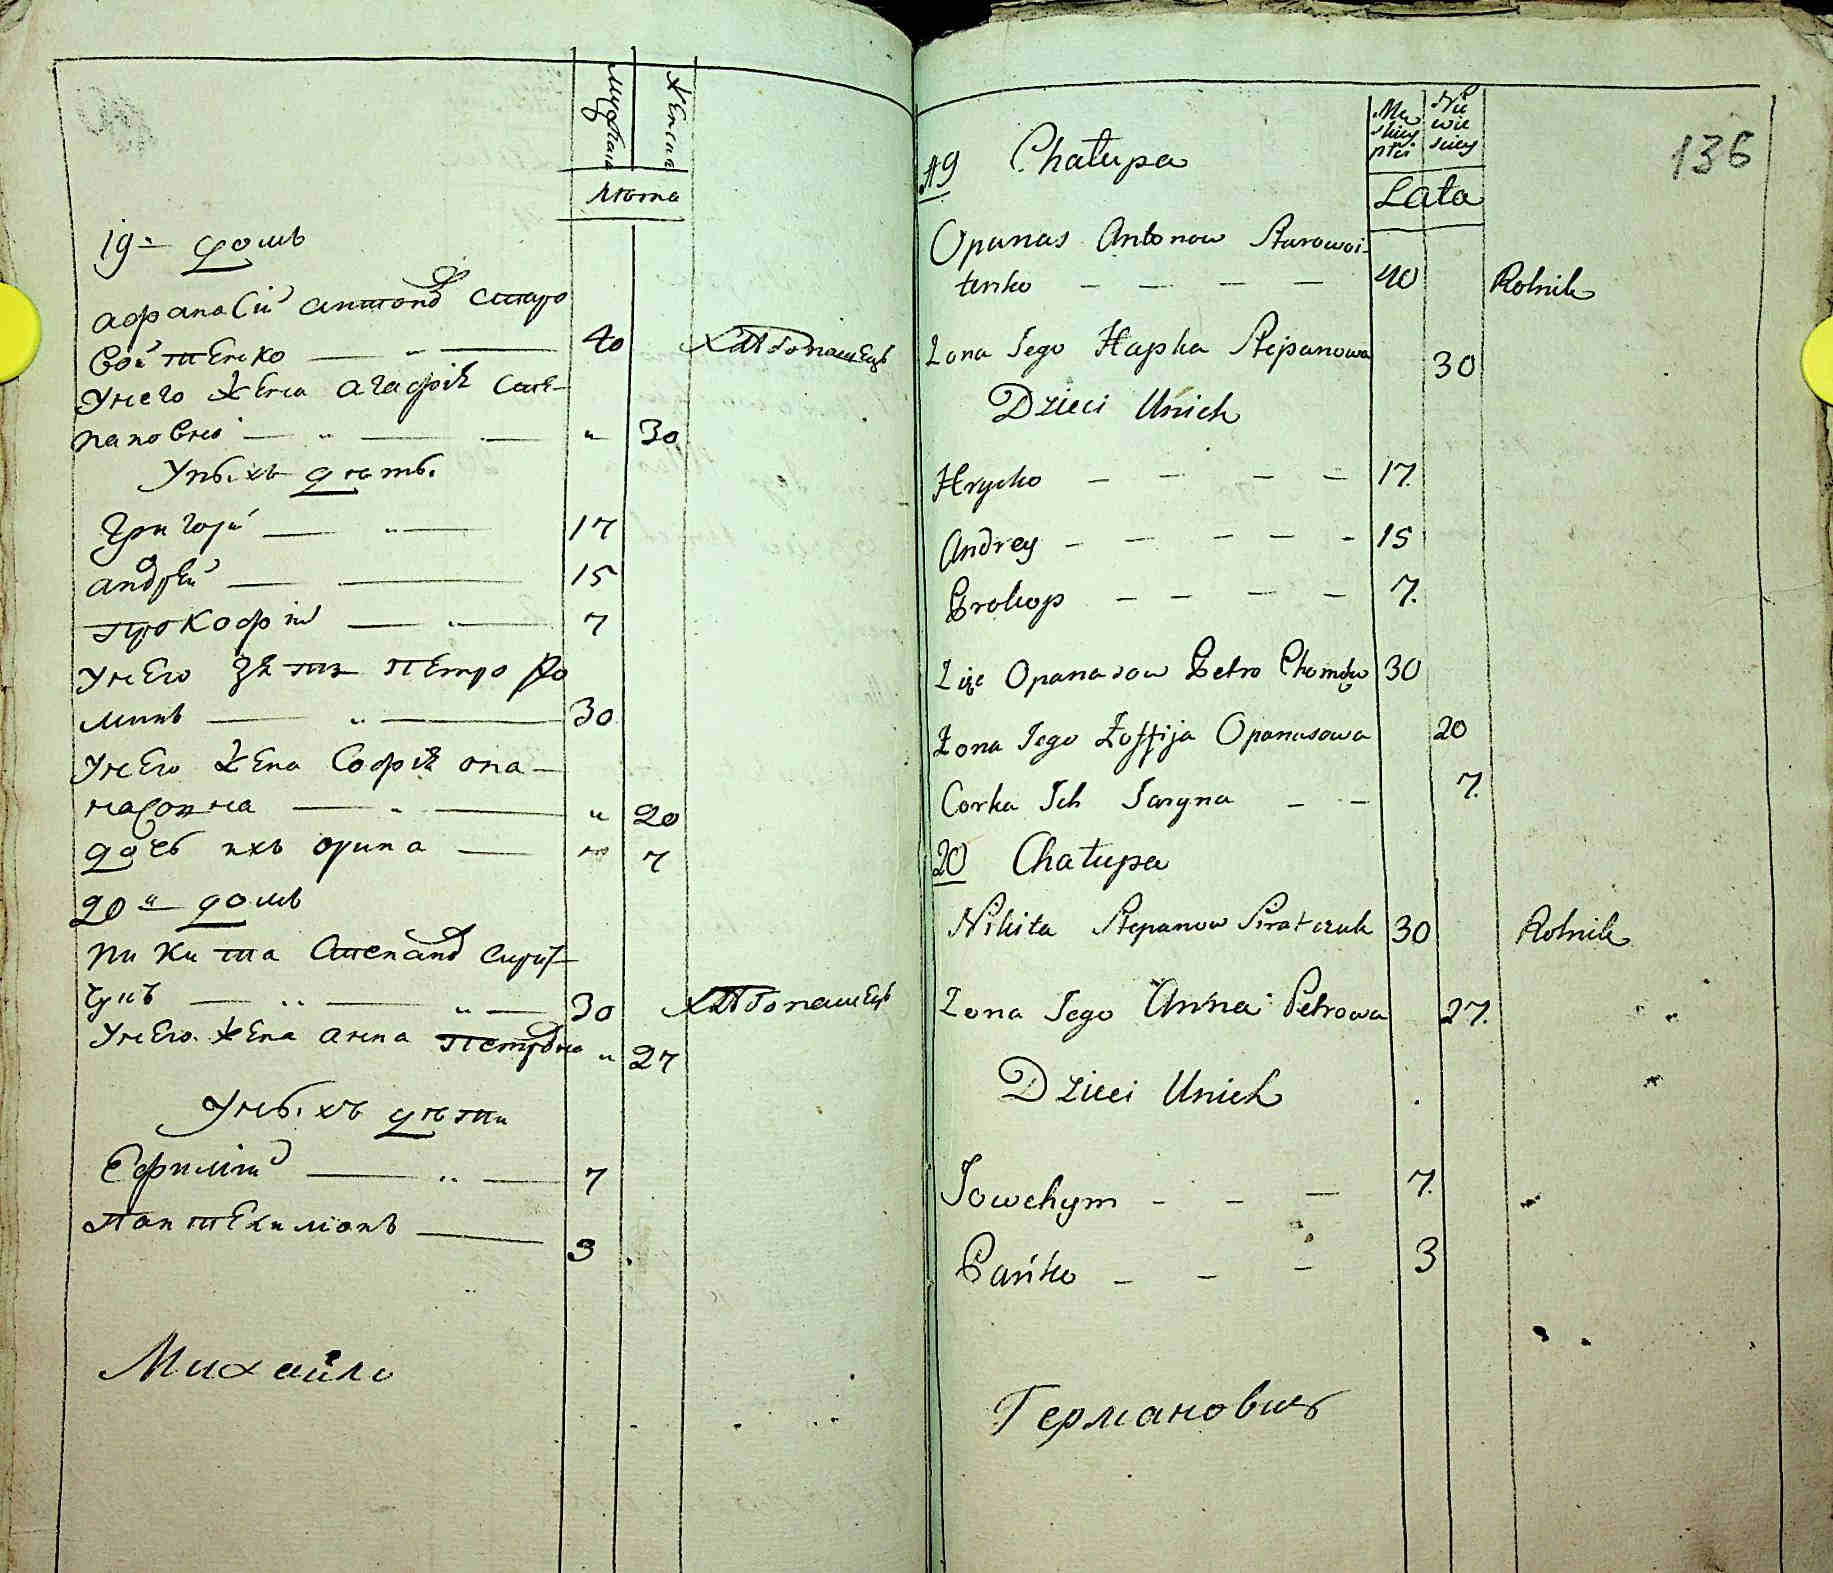 Мужска Женска
Лѣта
19й домъ
Афанасій Антоновъ Старо
войтенко — „ — 40 Хлѣбопашецъ
У него жена Агафія Сте-
пановна — „ — — „ 30
У ныхъ дѣты
Григорій — „ — 17
Андрѣй — — 15
Прокофій — „ — 7
У него зять Петро Фо
минъ — „ — 30
У него жена Софія Опа-
насовна — „ — „ 20
дочь ихъ Орина — „ 7
20й домъ
Никита Степановъ Сират-
чукъ — „ — „ — 30 Хлѣбопашецъ
У него жена Анна Петровна „ 27
У ныхъ дѣти
Ефимій — „ — 7
Пантелимонъ — 3
Михайло
136
Męskiey płci Niewieściey
Lata
19 Chałupa
Opanas Antonow Starowoi-
tenko — — — — 40 Rolnik
Żona Jego Hapka Stepanowa 30
Dzieci Unich
Hrycko — — — — 17.
Andrey — — — — — 15
Prokop — — — — 7.
Zięć Opanasow Petro Chomów 30
Żona Jego Zoffija Opanasowa 20
Corka Ich Jaryna — — 7.
20 Chałupa
Nikita Stepanow Siratczuk 30 Rolnik
Żona Jego Anna Petrowa 27.
Dzieci Unich
Jowchym — — — 7.
Pańko — — — 3
Германовичъ